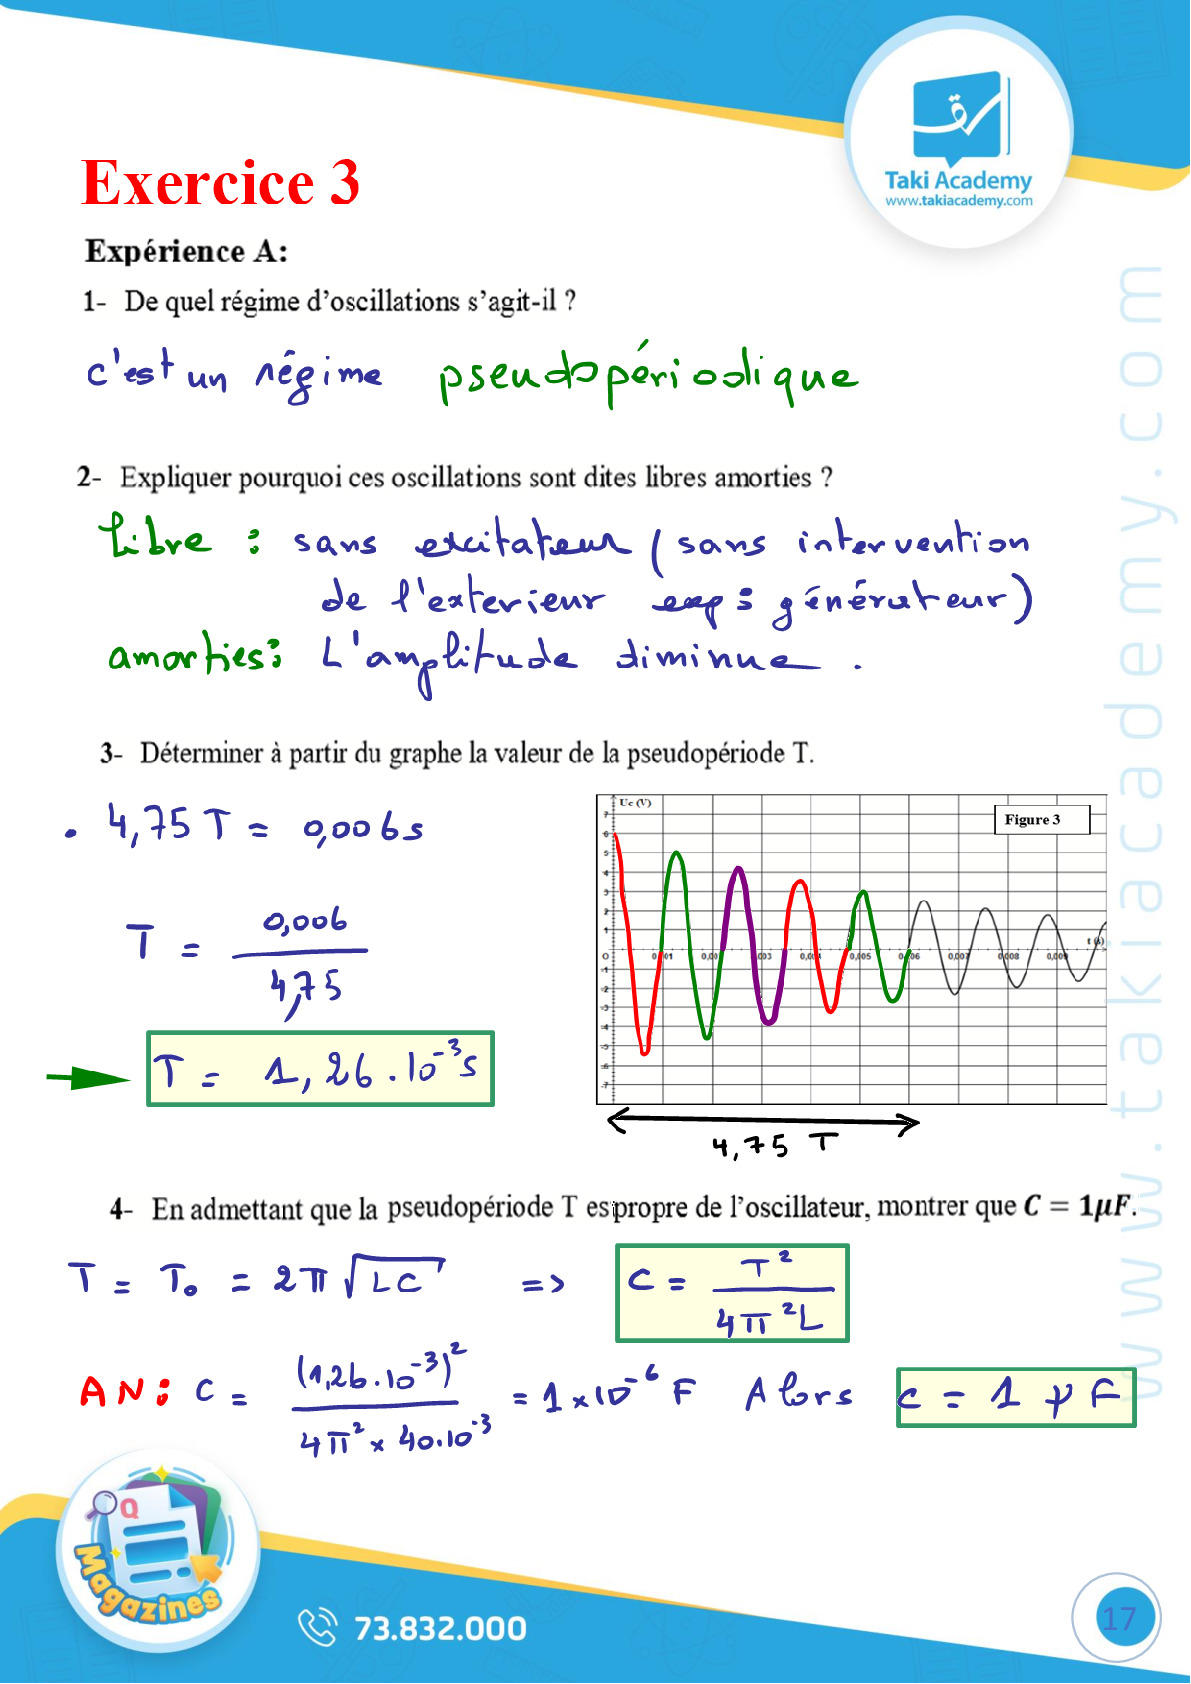 Taki Academy
www.takiacademy.com
Exercice 3
Expérience A:
1- De quel régime d'oscillations s'agit-il ?
c'est un régime pseudopériodique
2- Expliquer pourquoi ces oscillations sont dites libres amorties ?
Libre : sans excitateur (sans intervention
de l'exterieur exp : générateur)
amorties: L'amplitude diminue .
3- Déterminer à partir du graphe la valeur de la pseudopériode T.
. 4,75 T = 0,006 s
T = 0,006 / 4,75
T = 1,26 . 10⁻³ s
Uc (V)
Figure 3
7
6
5
4
3
2
1
0
-1
-2
-3
-4
-5
-6
-7
0,005 0,006 0,007 0,008 0,009
t (s)
4,75 T
4- En admettant que la pseudopériode T es propre de l'oscillateur, montrer que C = 1μF.
T = T₀ = 2π √LC => C = T² / 4π²L
AN: C = (1,26 . 10⁻³)² / 4π² × 40.10⁻³ = 1 × 10⁻⁶ F Alors C = 1 μF
www.takiacademy.com
Q
Magazines
73.832.000
17